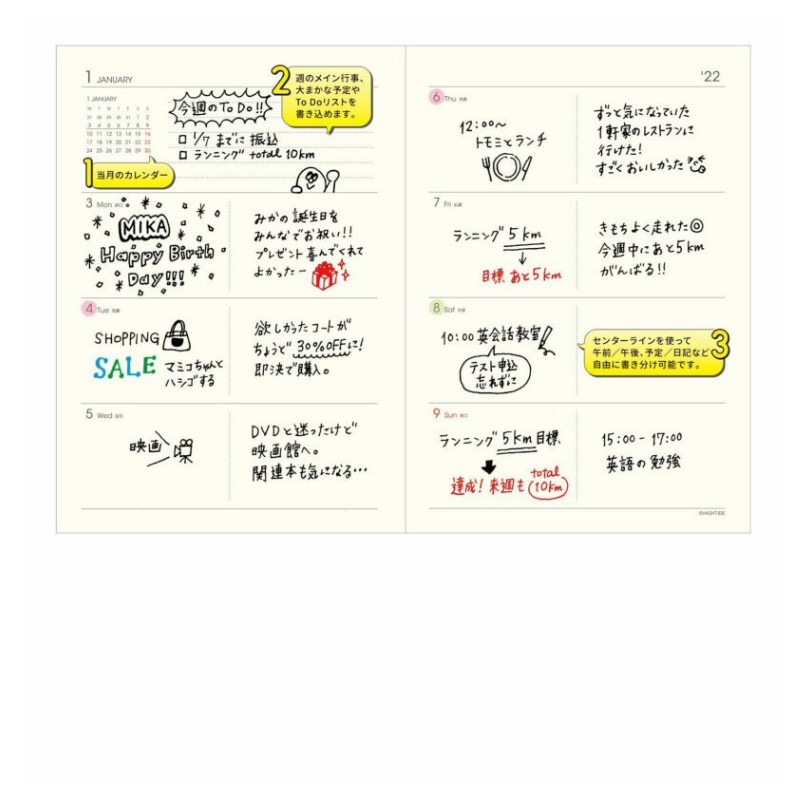 1 JANUARY
1 JANUARY
M T W T F S S
27 28 29 30 31 1 2
3 4 5 6 7 8 9
10 11 12 13 14 15 16
17 18 19 20 21 22 23
24 25 26 27 28 29 30
今週のTo Do!!
2 週のメイン行事、
大まかな予定や
To Doリストを
書き込めます。
□ 1/7 までに 振込
□ ランニング total 10km
1 当月のカレンダー
3 Mon
MIKA
Happy Birth
Day!!!
みかの 誕生日を
みんなでお祝い!!
プレゼント喜んでくれて
よかったー
4 Tue
SHOPPING
SALE
マミコちゃんと
ハシゴする
欲しかったコートが
ちょうど 30%OFFに!
即決で購入。
5 Wed
映画
DVDと迷ったけど
映画館へ。
関連本も気になる…
'22
6 Thu
12:00~
トモミとランチ
ずっと気になっていた
1軒家のレストランに
行けた!
すごくおいしかった
7 Fri
ランニング 5km
↓
目標 あと5km
きもちよく走れた◎
今週中にあと5km
がんばる!!
8 Sat
10:00 英会話教室
テスト申込
忘れずに
センターラインを使って
午前/午後、予定/日記など
自由に書き分け可能です。
3
9 Sun
ランニング 5km 目標
達成! 来週も total
10km
15:00-17:00
英語の勉強
©HIGHTIDE